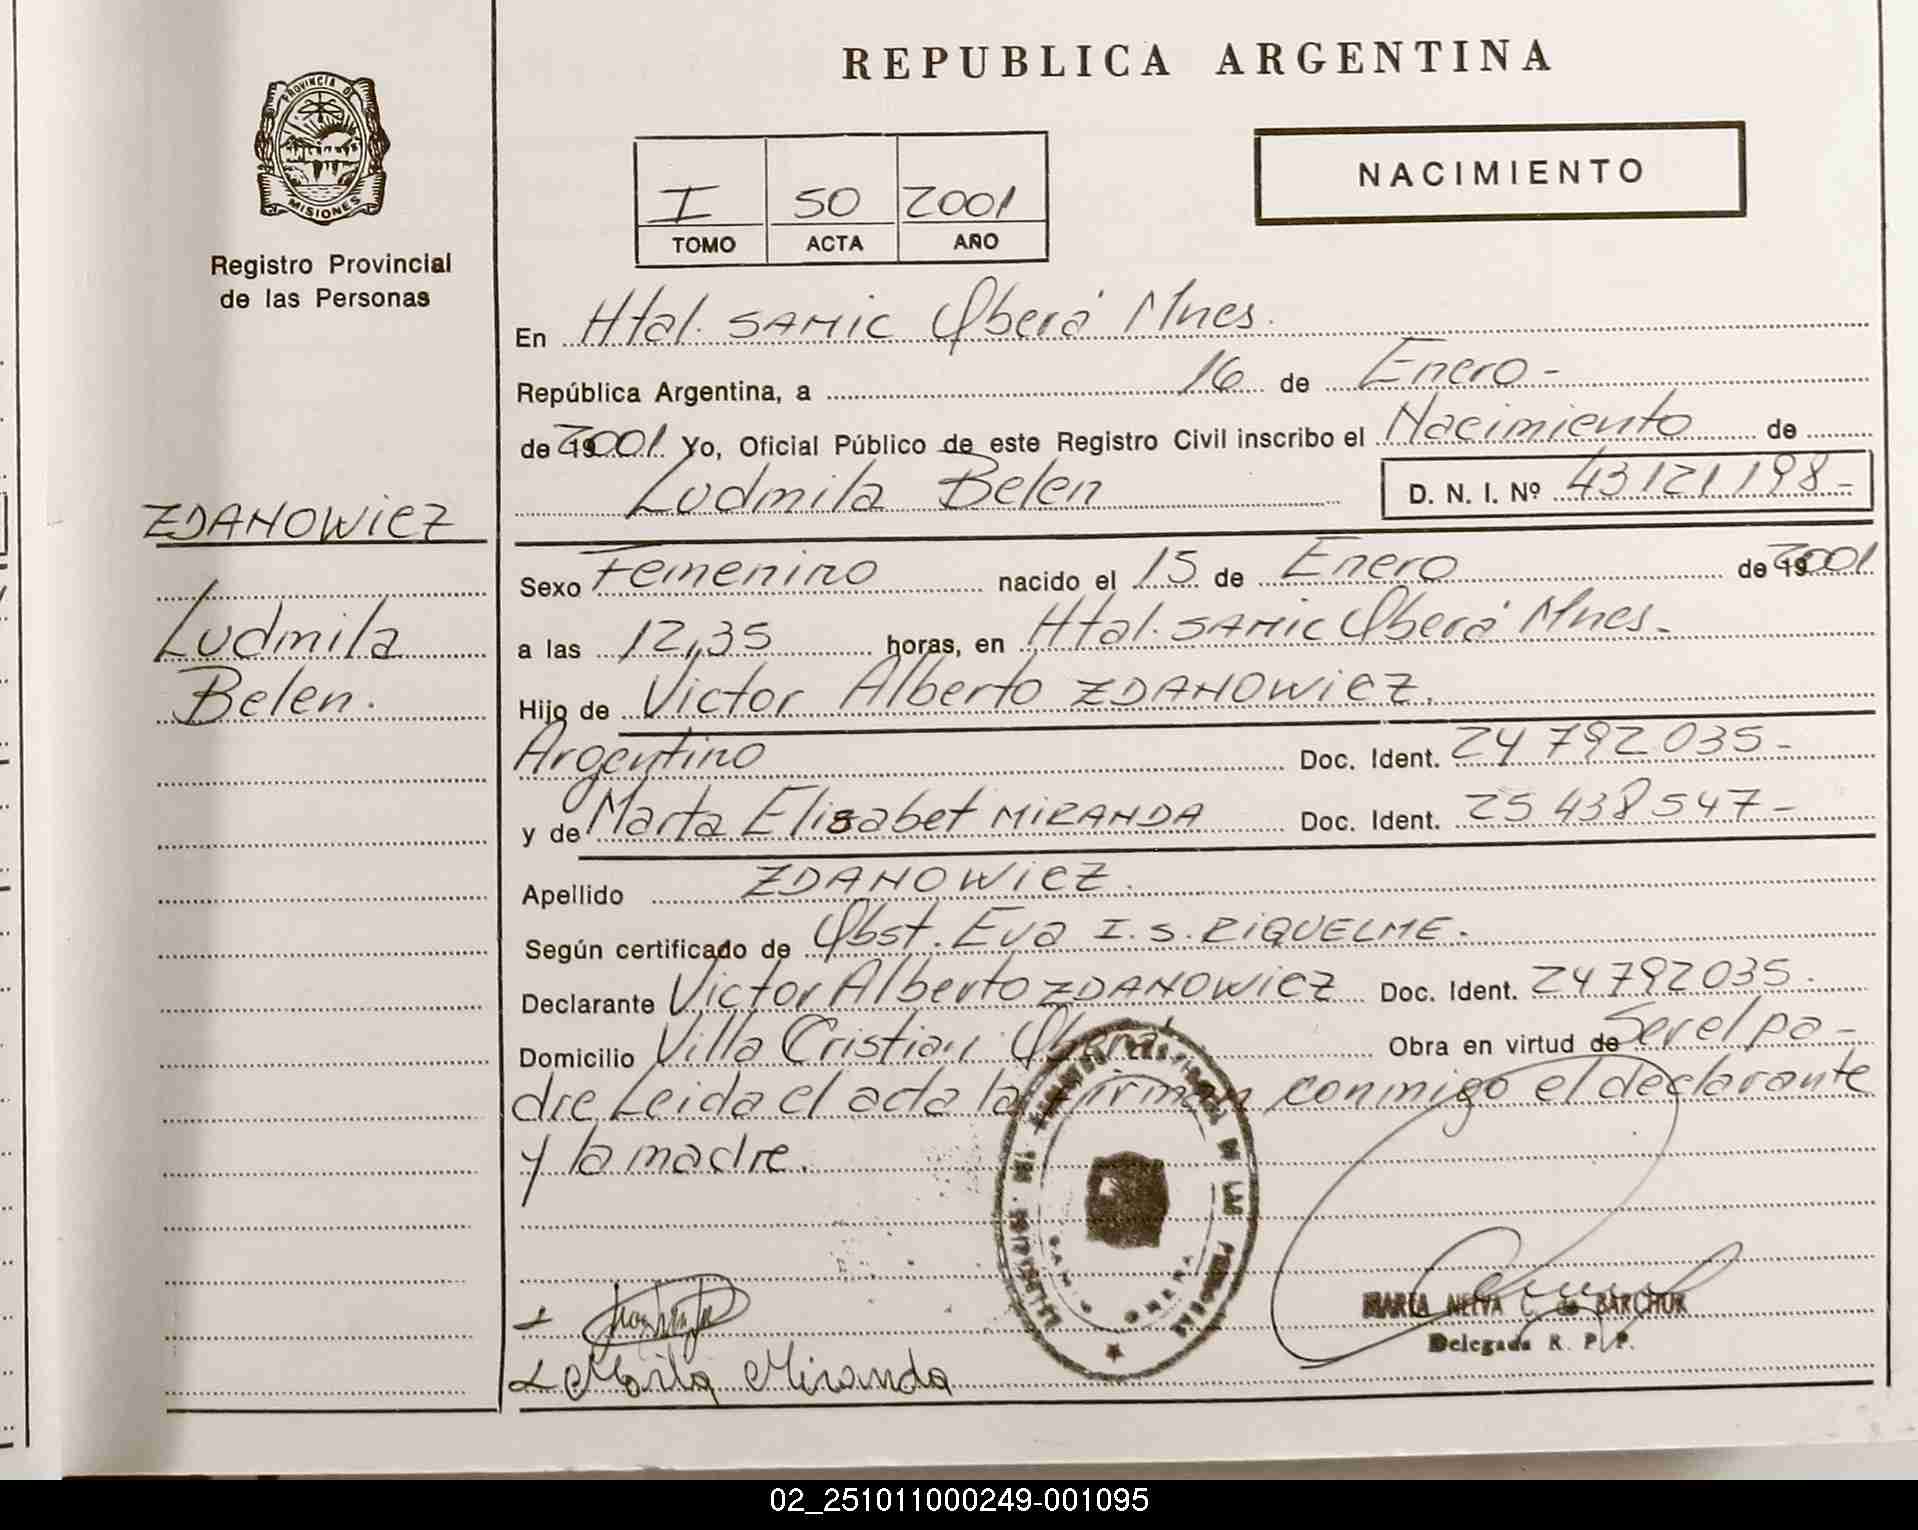 REPUBLICA ARGENTINA
PROVINCIA DE
MISIONES
Registro Provincial
de las Personas
NACIMIENTO
I 50 2001
TOMO ACTA AÑO
En Htal. SAMIC Oberá Mnes.
República Argentina, a 16 de Enero -
de 2001 Yo, Oficial Público de este Registro Civil inscribo el Nacimiento de
Ludmila Belen D. N. I. Nº 43121198-
ZDANOWiCZ
Ludmila
Belen.
Sexo Femenino nacido el 15 de Enero de 2001
a las 12,35 horas, en Htal. SAMIC Oberá Mnes-
Hijo de Victor Alberto ZDANOWiCZ.
Argentino Doc. Ident. 24 792 035-
y de Marta Elisabet MiRANDA Doc. Ident. 25 438 547-
Apellido ZDANOWiCZ.
Según certificado de Obst. Eva I. S. RiQUELME.
Declarante Victor Alberto ZDANOWiCZ Doc. Ident. 24 792 035.
Domicilio Villa Cristian Oberá Obra en virtud de Ser el pa-
dre Leida el acta la firman conmigo el declarante
y la madre.
MARIA NELVA C. de BARCHUK
Delegada R. P. P.
Marta Miranda
02_251011000249-001095